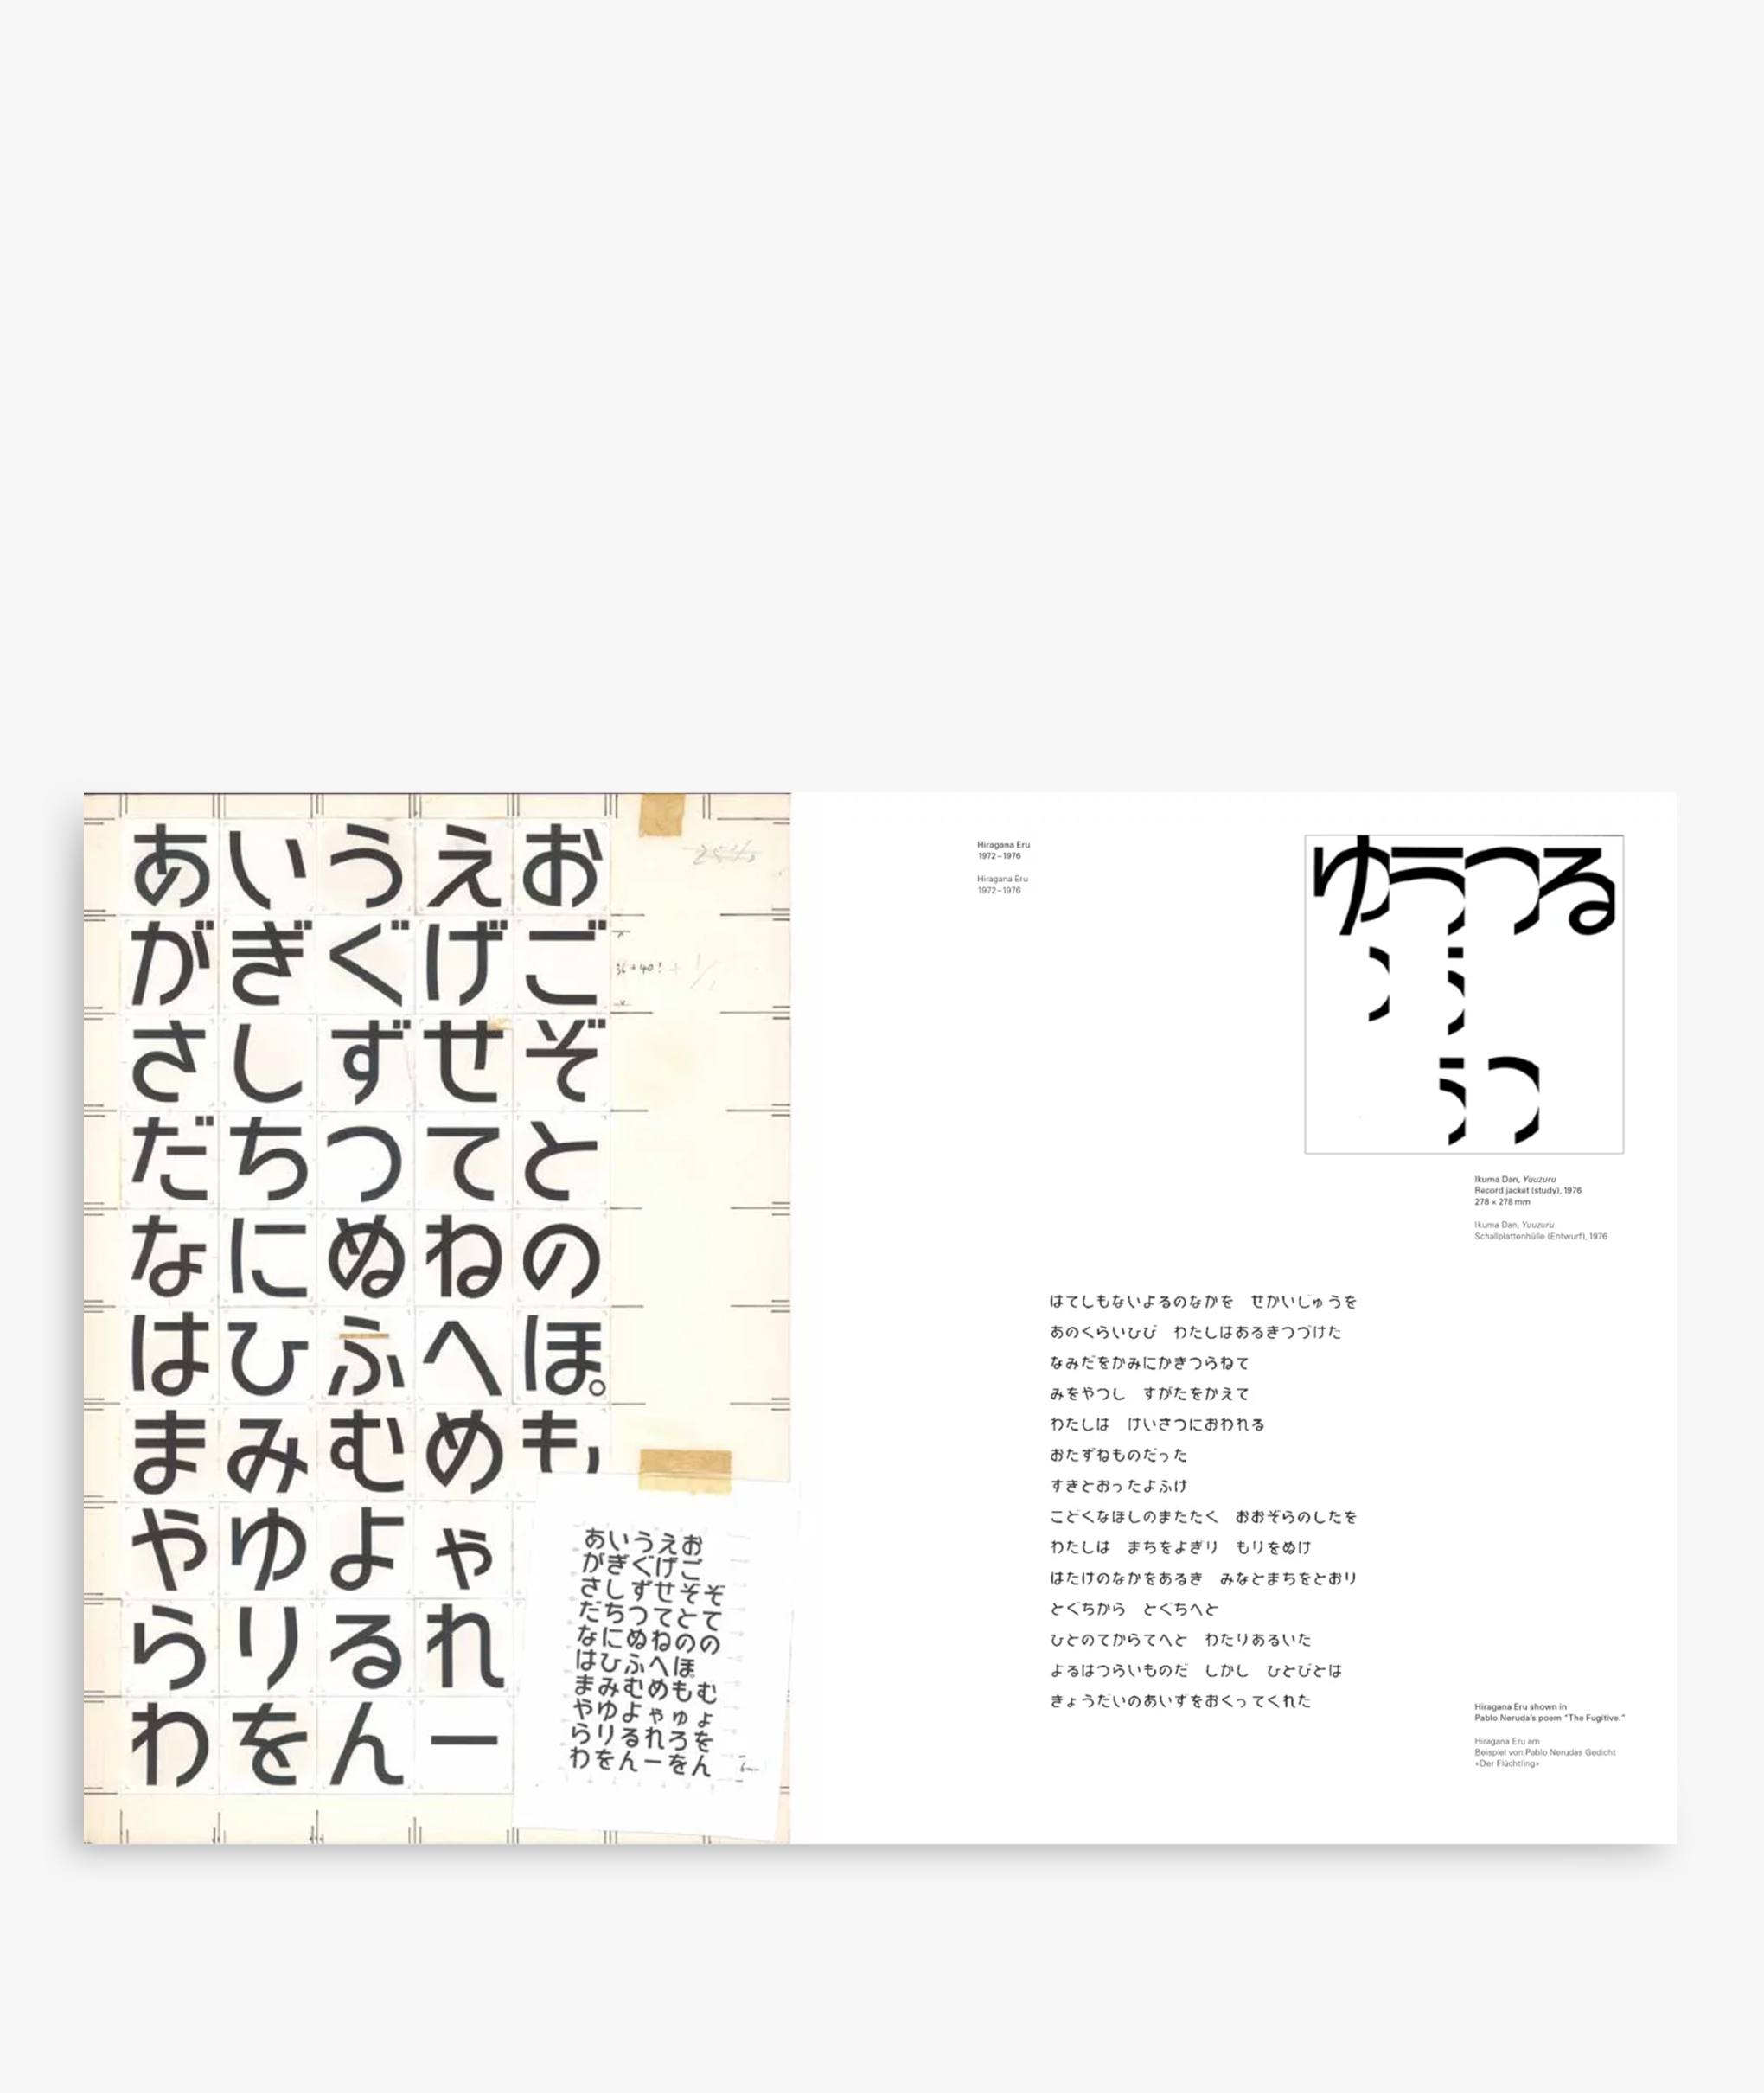 あいうえお
がぎぐげご
さしずせぞ
だちつてと
なにぬねの
はひふへほ。
まみむめも,
やゆよゃ
らりるれ
わをんー
36+40!
あいうえお
がぎぐげご
さしずせそぞ
だちつてとて
なにぬねのの
はひふへほ
まみむめもむ
やゆよゃゅょ
らりるれろを
わをんーをん
Hiragana Eru
1972–1976
Hiragana Eru
1972–1976
ゆうつる
Ikuma Dan, Yuuzuru
Record jacket (study), 1976
278 × 278 mm
Ikuma Dan, Yuuzuru
Schallplattenhülle (Entwurf), 1976
はてしもないよるのなかを　せかいじゅうを
あのくらいひび　わたしはあるきつづけた
なみだをかみにかきつらねて
みをやつし　すがたをかえて
わたしは　けいさつにおわれる
おたずねものだった
すきとおったよふけ
こどくなほしのまたたく　おおぞらのしたを
わたしは　まちをよぎり　もりをぬけ
はたけのなかをあるき　みなとまちをとおり
とぐちから　とぐちへと
ひとのてからてへと　わたりあるいた
よるはつらいものだ　しかし　ひとびとは
きょうだいのあいずをおくってくれた
Hiragana Eru shown in
Pablo Neruda's poem “The Fugitive.”
Hiragana Eru am
Beispiel von Pablo Nerudas Gedicht
«Der Flüchtling»